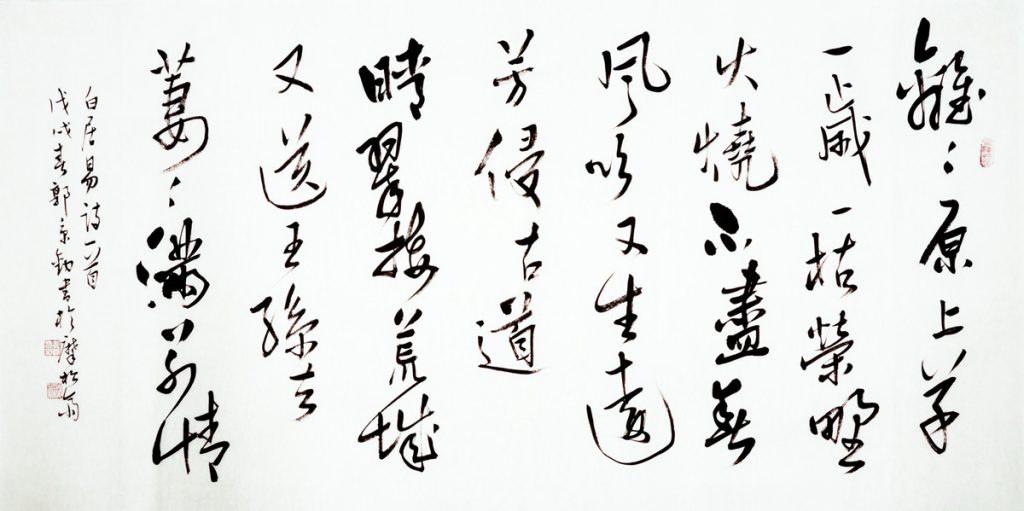 離〻原上草
一歲一枯榮野
火燒不盡春
風吹又生遠
芳侵古道
晴翠接荒城
又送王孫去
萋〻滿別情
白居易詩一首
戊戌春郭京勤書於摩松